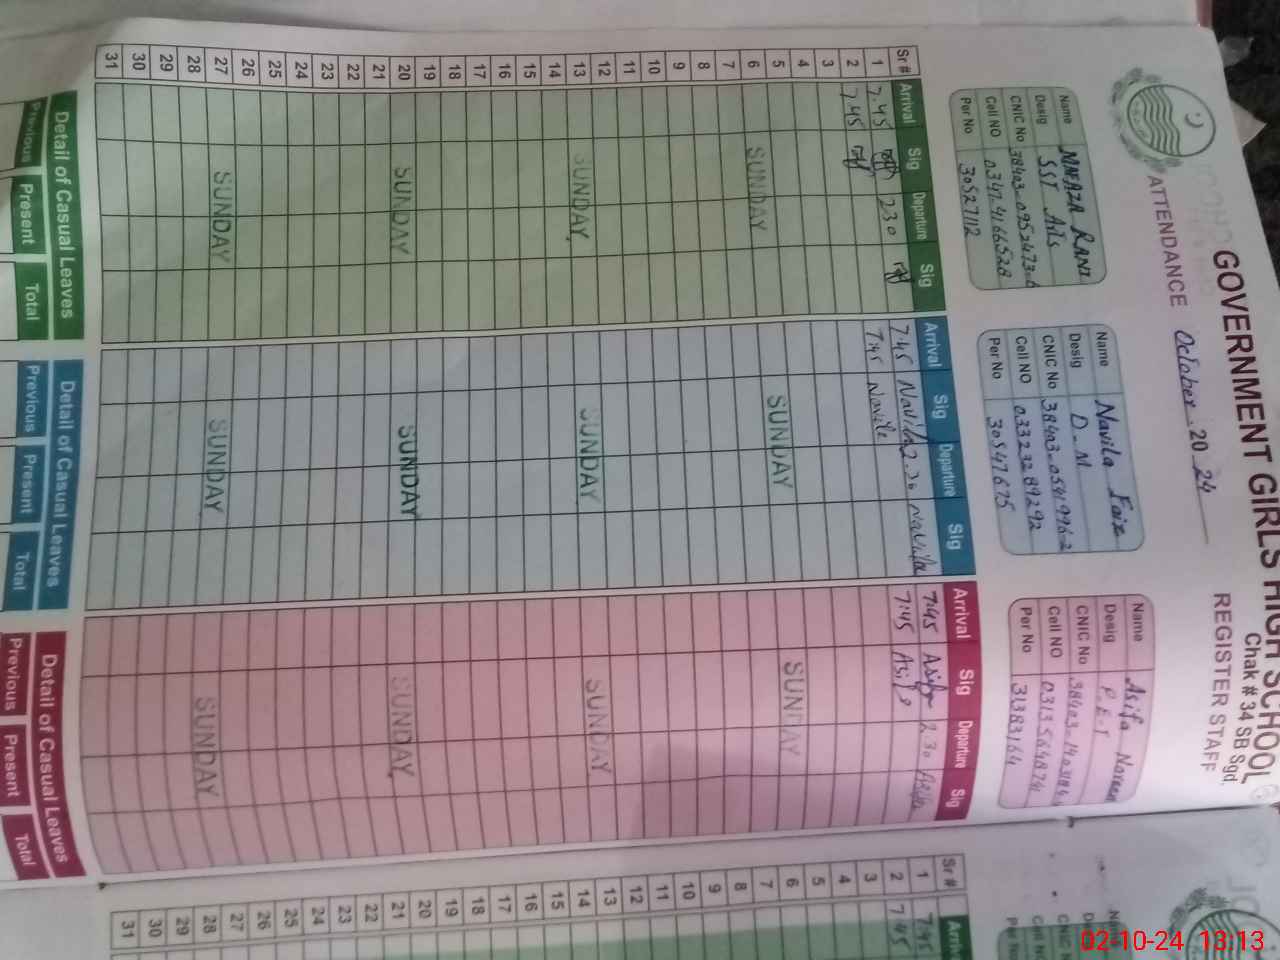 GOVERNMENT GIRLS HIGH SCHOOL
Chak # 34 SB Sgd.
ATTENDANCE October . 20 24 REGISTER STAFF
Name MNAZA RANI
Desig SST Arts
CNIC No
Cell NO 0347-4166528
Per No 30527112
Name Navila Faiz
Desig D-M
CNIC No 38403-0541996-2
Cell NO 03323289292
Per No 30547675
Name Asifa Noreen
Desig P.E.T
CNIC No
Cell NO 03135648741
Per No 31383164
Sr # Arrival Sig Departure Sig Arrival Sig Departure Sig Arrival Sig Departure Sig
1 7.45 230 7:45 Navila 2.30 Navila 7:45 Asifa 2.30 Asifa
2 7.45 7:45 Navila 7:45 Asifa
3
4
5
6 SUNDAY SUNDAY SUNDAY
7
8
9
10
11
12
13 SUNDAY SUNDAY SUNDAY
14
15
16
17
18
19
20 SUNDAY SUNDAY SUNDAY
21
22
23
24
25
26
27 SUNDAY SUNDAY SUNDAY
28
29
30
31
Detail of Casual Leaves Detail of Casual Leaves Detail of Casual Leaves
Previous Present Total Previous Present Total Previous Present Total
Sr #
1 7:45
2 7:45
3
4
5
6
7
8
9
10
11
12
13
14
15
16
17
18
19
20
21
22
23
24
25
26
27
28
29
30
31
02-10-24 13:13